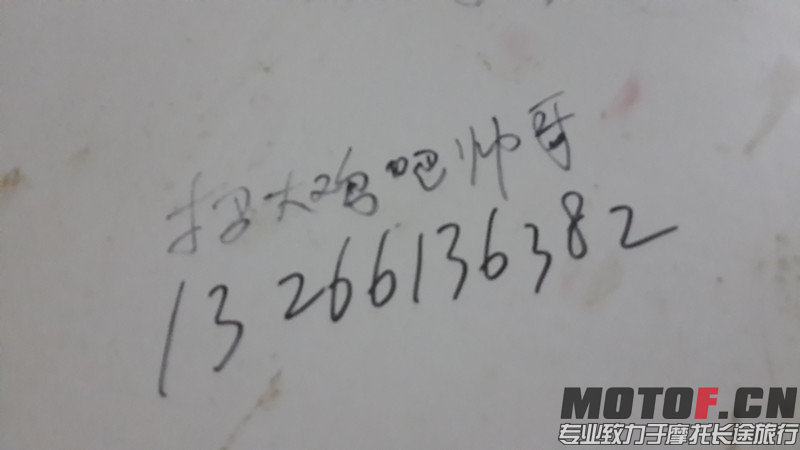 找大鸡吧帅哥
13266136382
MOTOF.CN
专业致力于摩托长途旅行